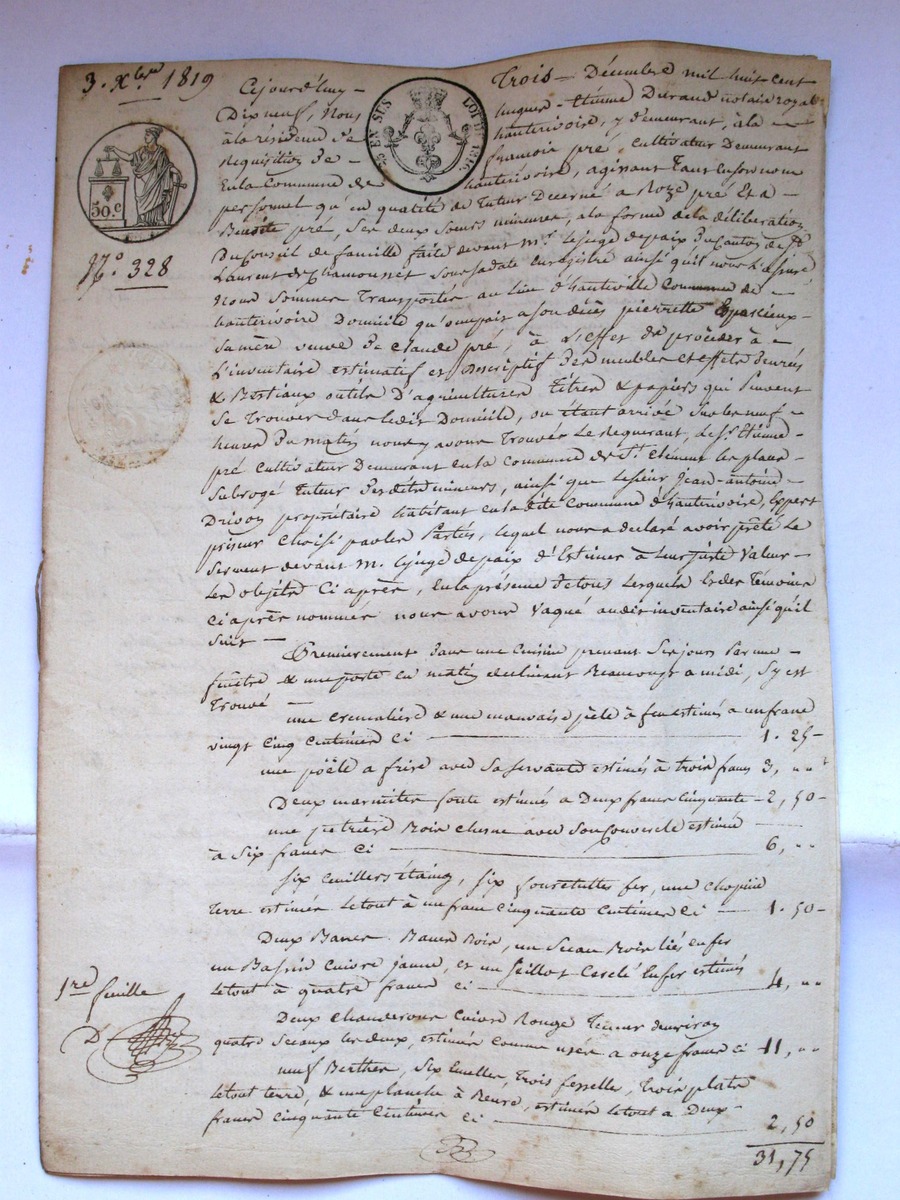 3. Xbre 1819
50.c
N.o 328
EN SUS
LOI DE 1816.
Cejourd'huy Trois Décembre mil huit cent
Dix neuf, Nous Etiénne Durand notaire royal
à la résidence de hauterivoire, y demeurant, à la
Requisition de françois pré cultivateur Demeurant
En la Commune de hauterivoire, agissant Tant En son nom
personnel qu'en qualité de Tuteur Decerné a Roze pré Et a
Benoite pré, Ses deux Sœurs mineures, a la forme de la déliberation
Du Conseil de famille faite devant Mr. le juge de paix Du Canton de St.
Laurent de Chamousset Sous sa date Enregistré ainsi qu'il nous l'a assuré
Nous Sommes Transportés au Lieu d'hauteville Commune de
hauterivoire Domicile qu'occupait a son décès pierrette Eparcieux
Sa mère veuve De Claude pré, à L'effet de procéder à
L'inventaire estimatif et Descriptif Des meubles et effets Denrés
& Bestiaux outils D'agriculture Titres & papiers qui peuvent
Se Trouver dans ledit Domicile, ou étant arrivé Sur les neuf
heures Du matin nous y avons Trouvés Le Requerant, Le Sr. Etiénne
pré Cultivateur Demeurant en la Commune de St.
Subrogé Tuteur Desdits mineurs, ainsi que le Sieur Jean-antoine
Drivon propriétaire habitant en la dite Commune d'hauterivoire, Expert
priseur Choisi par les Parties, lequel nous a déclaré avoir prêté Le
Serment devant M. le juge de paix d'Estimer à Leur juste Valeur
Les objets Ci après, En la présence De tous Lesquels Et des Témoins
Ci après nommés nous avons Vaqué audit inventaire ainsi qu'il
Suit
Premierement dans une Cuisine prenant Ses jours Par une
fenêtre & une porte en matin declinant Beaucoup a midi, S'y est
Trouvé
une Cremaliere & une mauvaise pèle à feu estimés a un franc
vingt Cinq Centimes Ci 1. 25
une pöêle a frire avec Sa Servante estimés à trois francs 3, "
Deux marmites fonte estimés a Deux francs Cinquante 2, 50
une petrière Bois Chesne avec Son Couvercle estimé
à Six francs Ci 6, "
Six Cuillers étaing, Six fourchettes fer, une Chopine
Terre estimés Le tout à un franc Cinquante Centimes Ci 1. 50
Deux Bancs Bois, un Seau Bois liés en fer
un Bassin Cuivre jaune, et un Seillot Cerclé En fer estimés
Le tout à quatre francs Ci 4, "
Deux Chauderons Cuivre Rouge Tenant environ
quatre Seaux les deux, estimés Comme usés a onze francs Ci 11, "
neuf Berthes, Six Ecuelles, Trois fesselles, Trois plats
Le tout terre, & une planche à Beure, estimés Le tout a Deux
francs Cinquante Centimes Ci 2, 50
31, 75
1re feuille
D